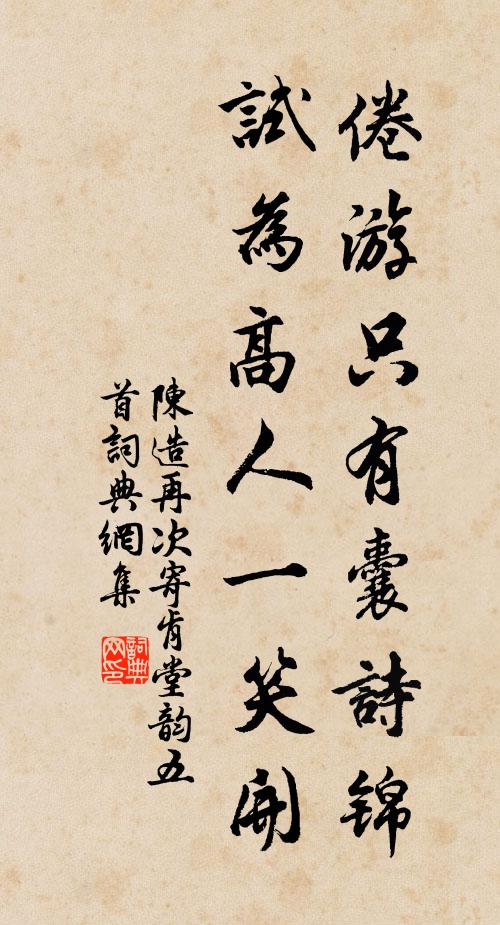 倦游只有囊詩錦
試為高人一笑開
陳造再次寄肯堂韵五
首詞典網集
詞典网印